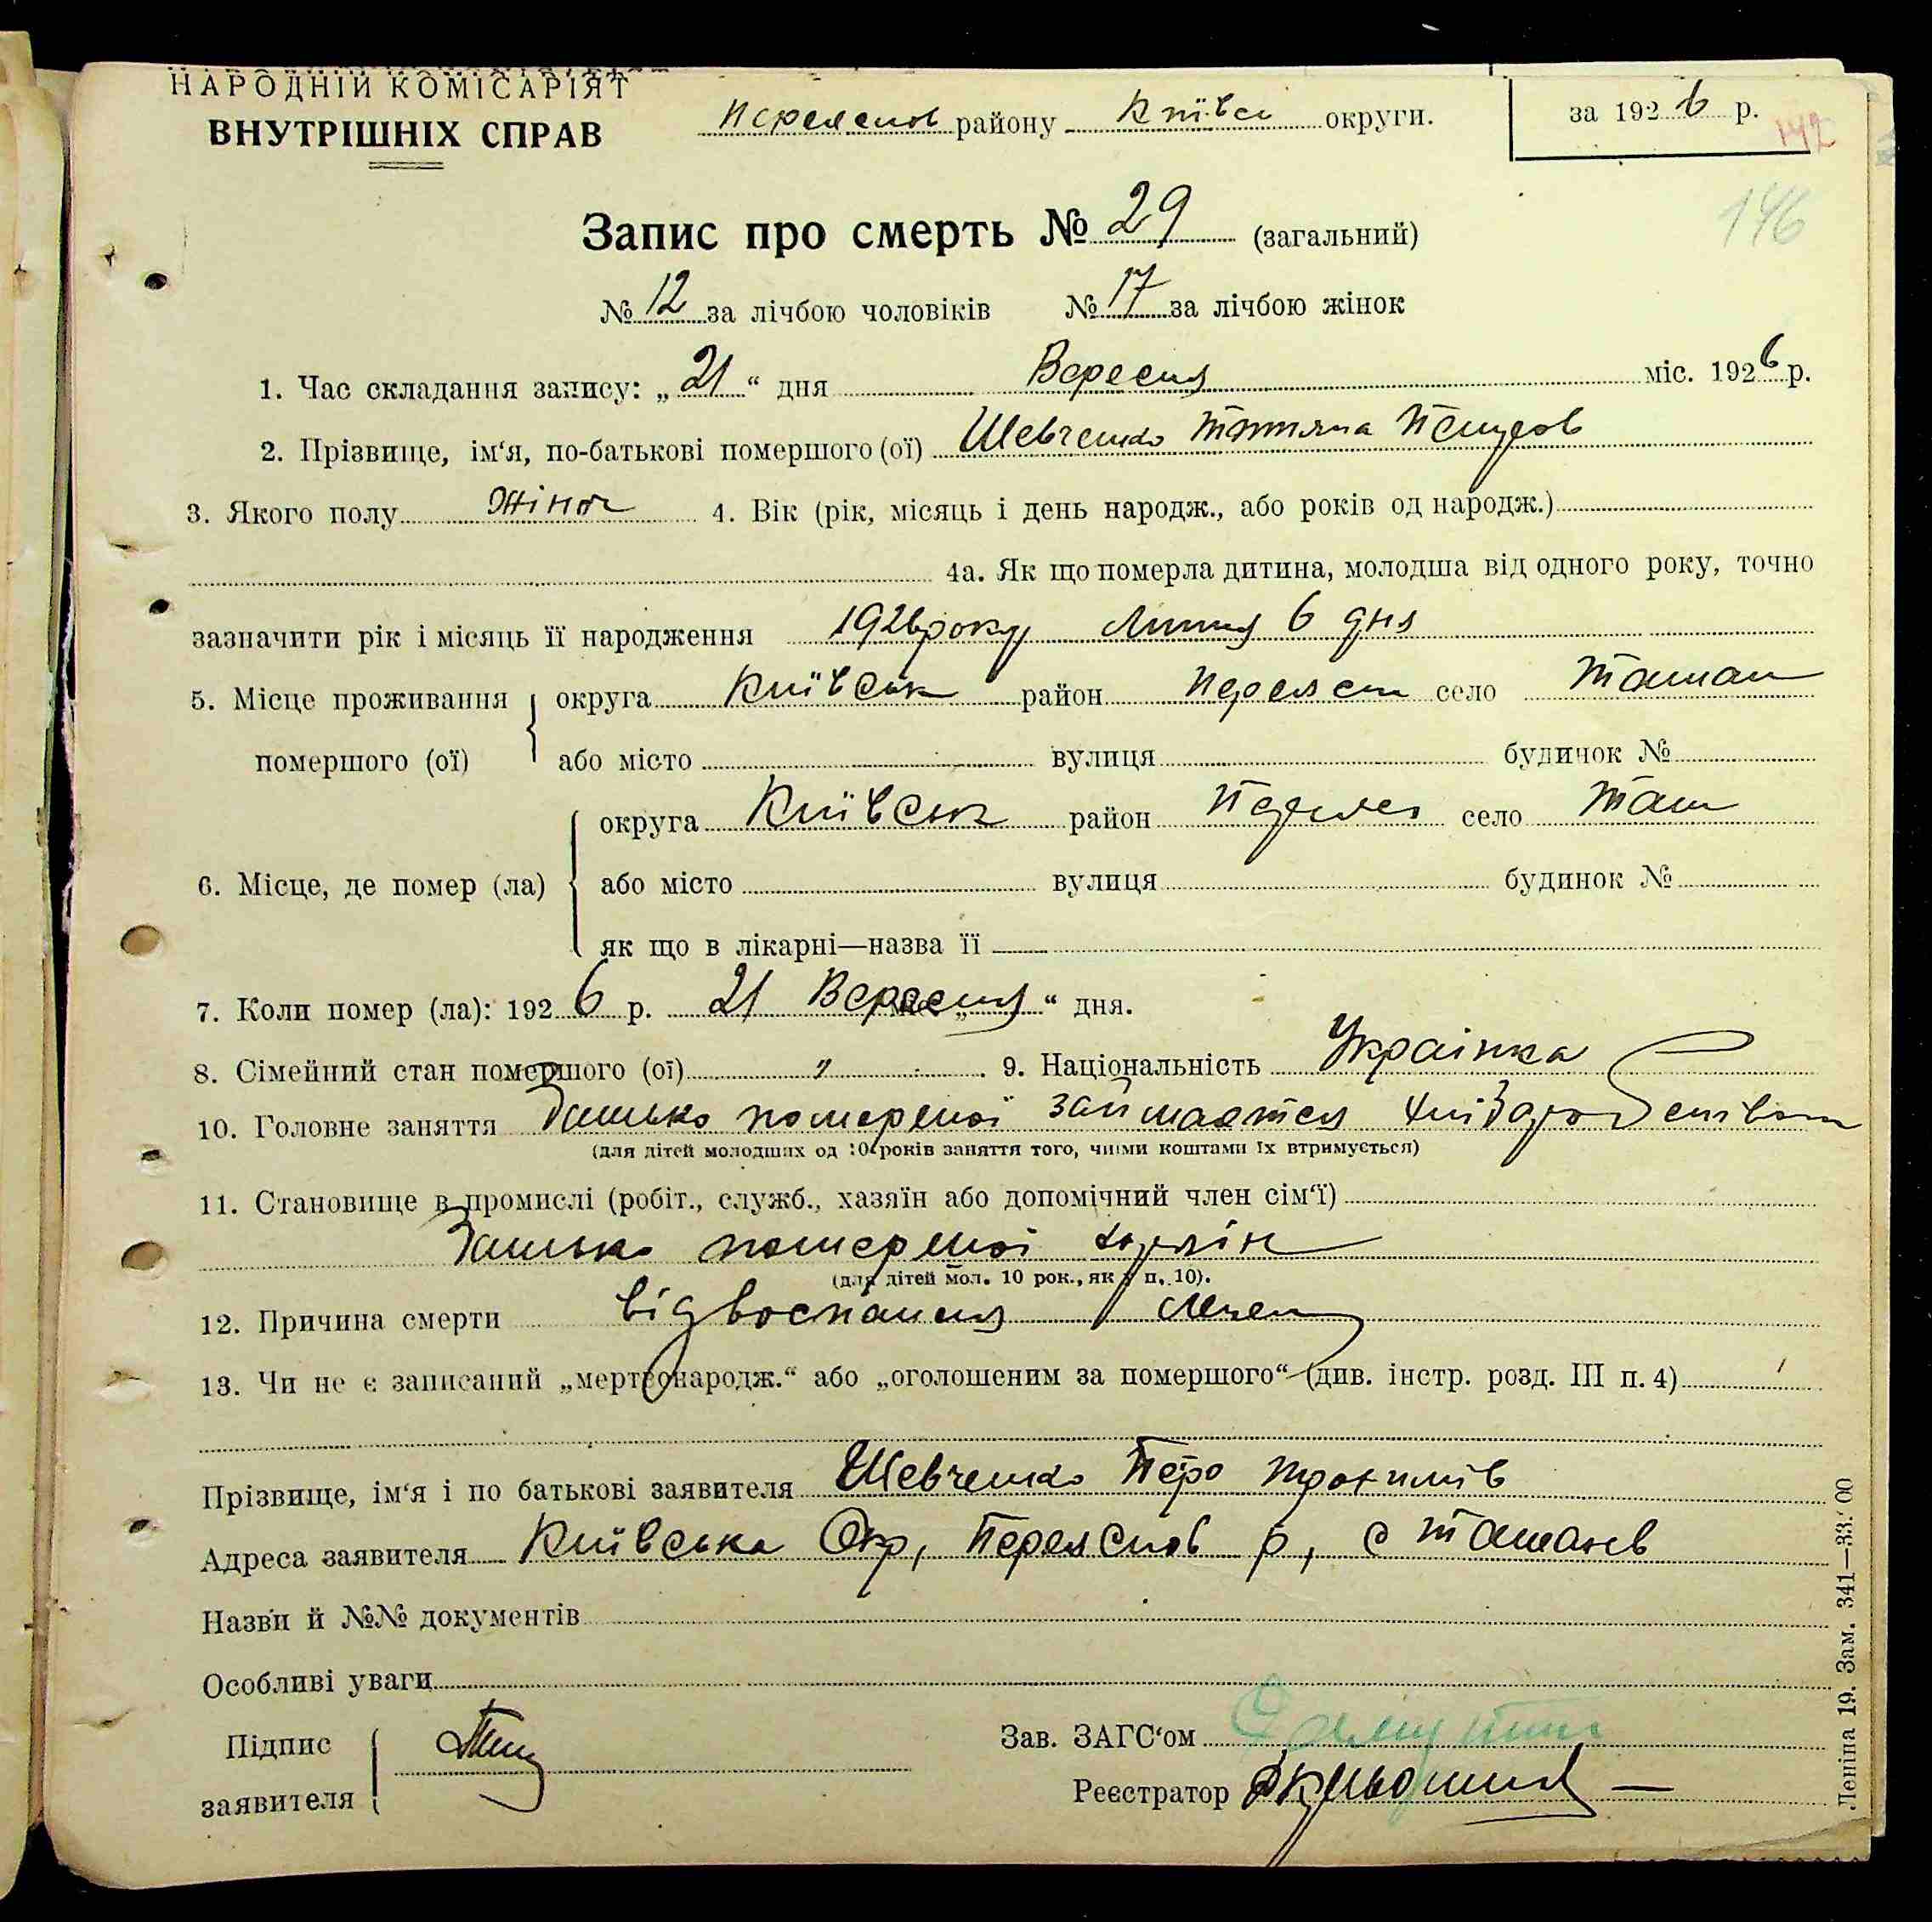 НАРОДНІЙ КОМІСАРІЯТ
ВНУТРІШНІХ СПРАВ
Переяслов району Київсь округи.
за 1926 р.
142
146
Запис про смерть № 29 (загальний)
№ 12 за лічбою чоловіків № 17 за лічбою жінок
1. Час складання запису: „21“ дня Вересня міс. 1926 р.
2. Прізвище, ім‘я, по-батькові помершого (ої) Шевченко Тятяна
3. Якого полу жіноч 4. Вік (рік, місяць і день народж., або років од народж.)
4а. Як що померла дитина, молодша від одного року, точно
зазначити рік і місяць її народження 1926 року Липня 6 дня
5. Місце проживання помершого (ої) округа Київськ район Переясл село Ташан
або місто вулиця будинок №
6. Місце, де помер (ла) округа Київськ район Переяс село Таш
або місто вулиця будинок №
як що в лікарні—назва її
7. Коли помер (ла): 1926 р. 21 Вересня “ дня.
8. Сімейний стан помершого (ої) „ 9. Національність Українка
10. Головне заняття Батько помершої займается хліборобством
(для дітей молодших од 10 років заняття того, чиїми коштами їх втримується)
11. Становище в промислі (робіт., служб., хазяїн або допомічний член сім‘ї)
Батько помершої хазяін
(для дітей мол. 10 рок., як у п. 10).
12. Причина смерти від воспаления легень
13. Чи не є записаний „мертвонародж.“ або „оголошеним за помершого“ (див. інстр. розд. III п. 4)
Прізвище, ім‘я і по батькові заявителя Шевченко Петро Трохимів
Адреса заявителя Київська Окр, Переяслов р, с Ташань
Назви й №№ документів
Особливі уваги
Підпис заявителя
Зав. ЗАГС‘ом
Реєстратор
Леніна 19. Зам. 341—33.000